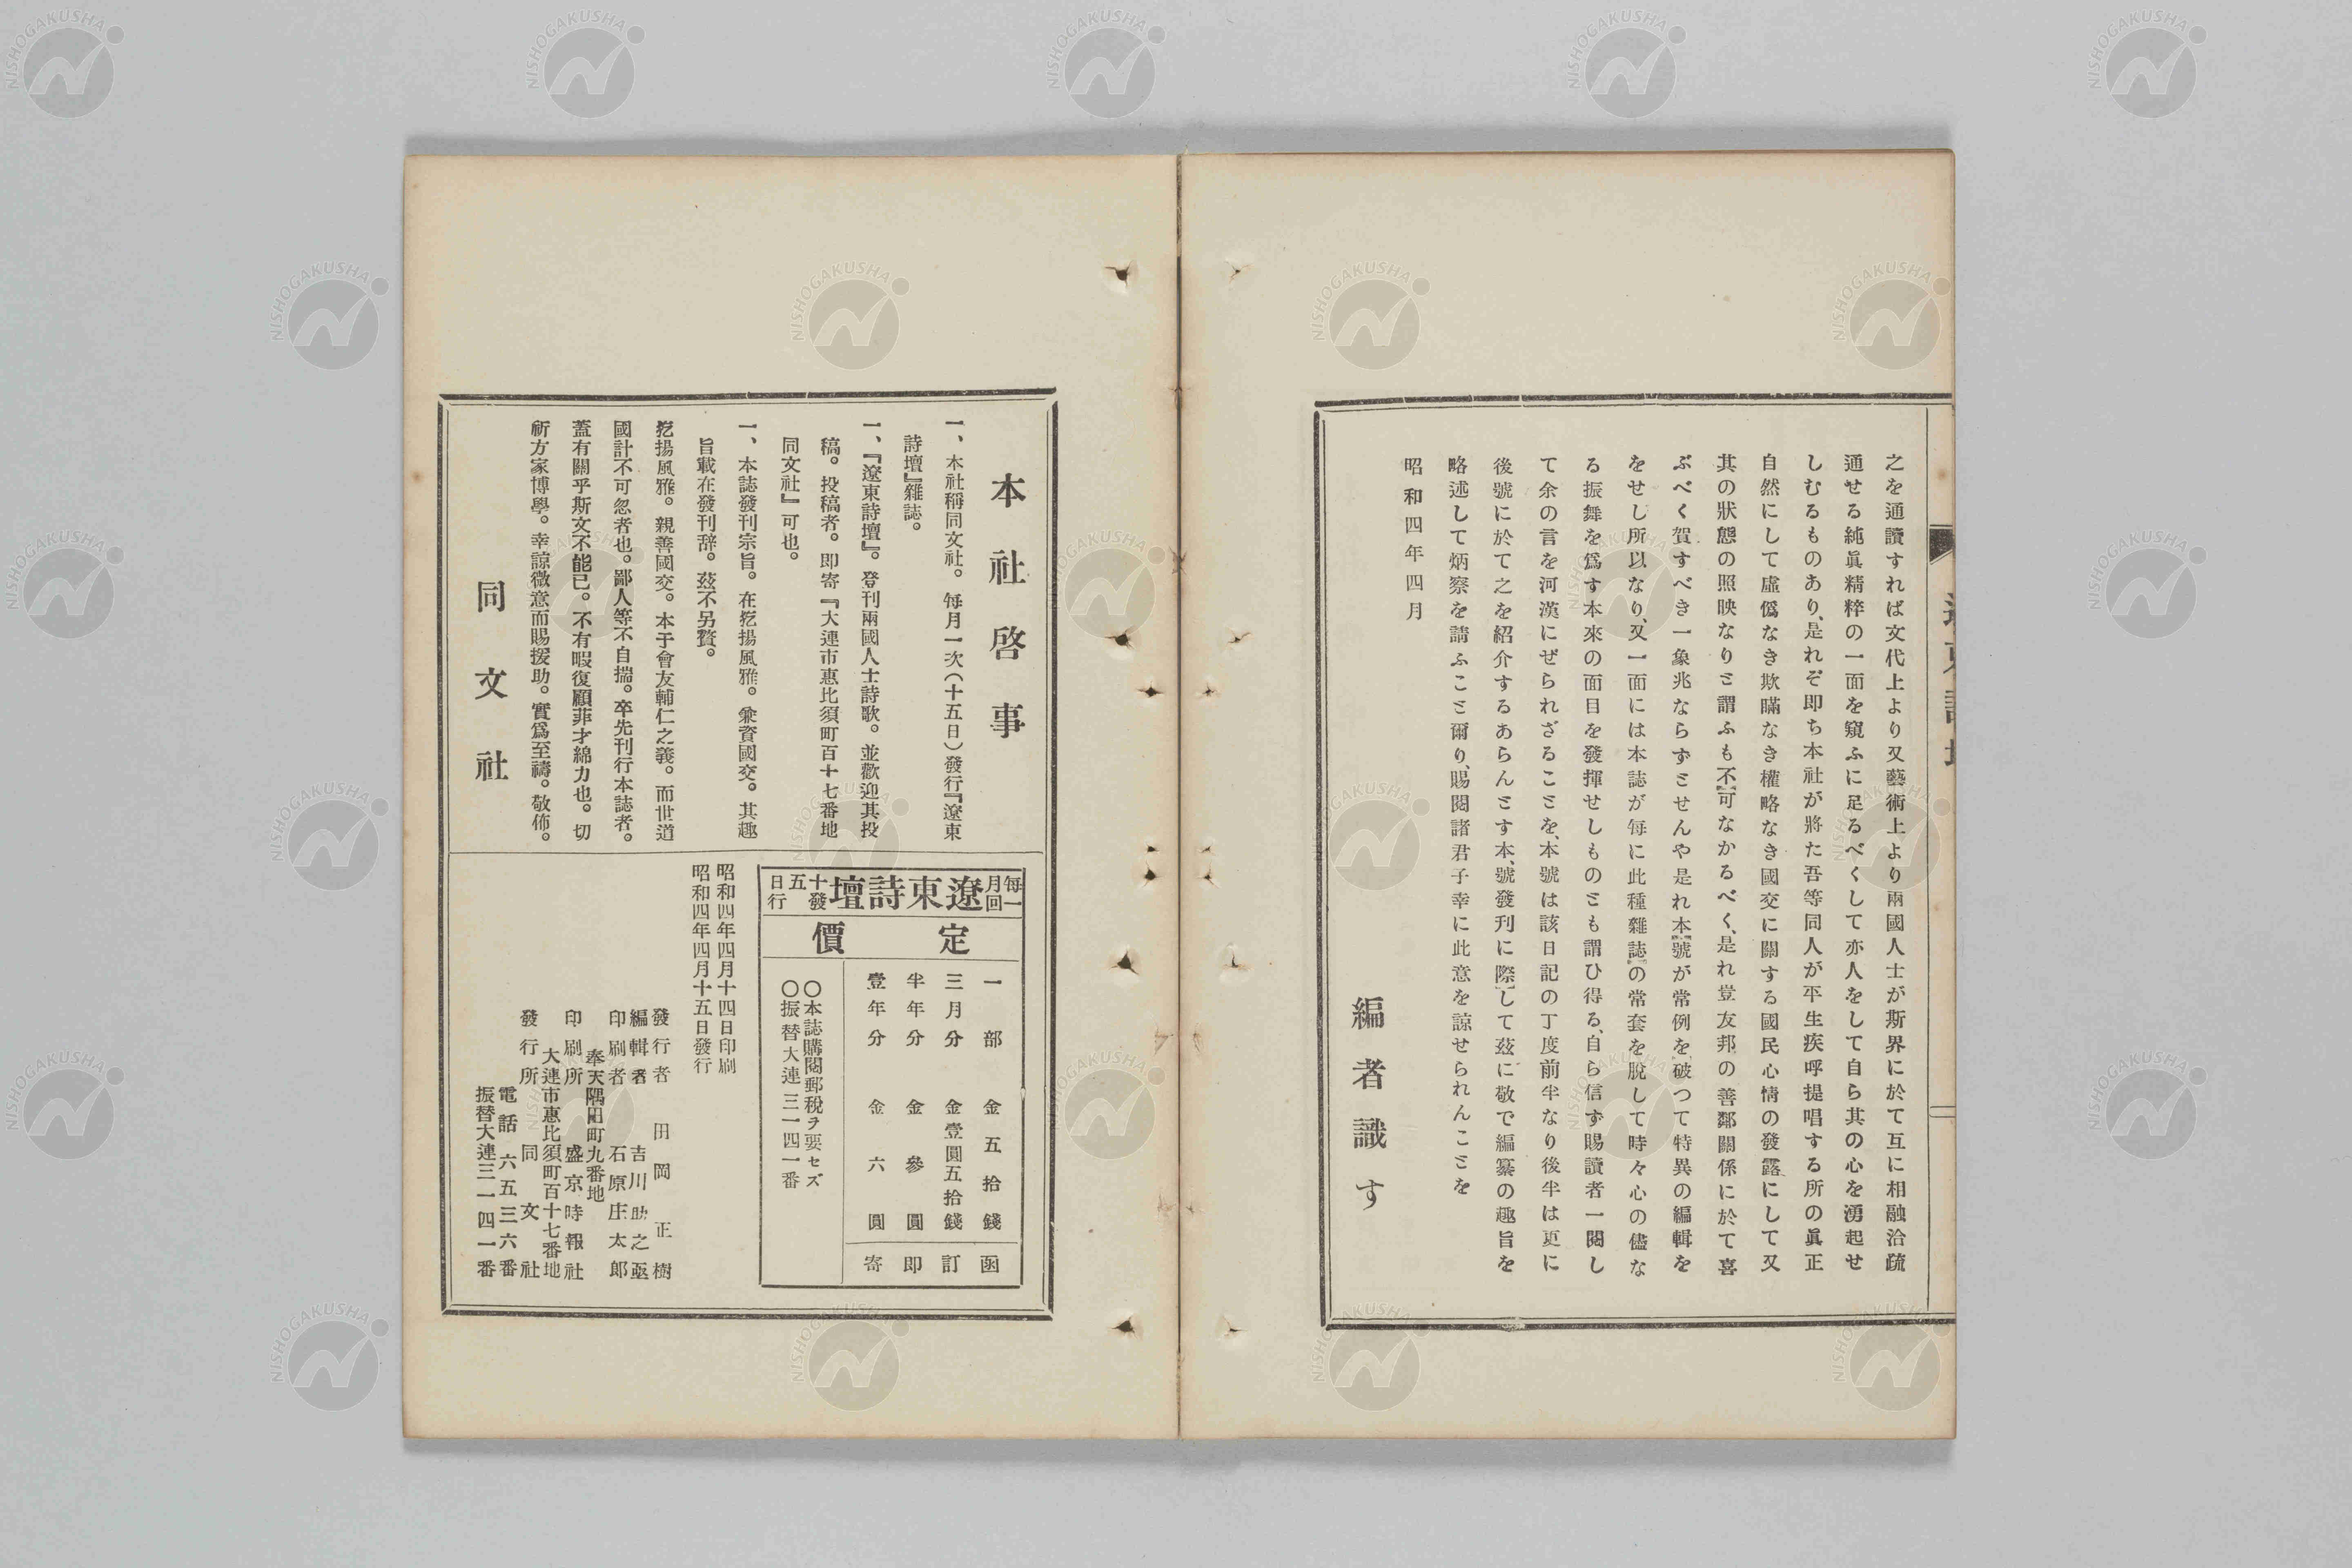 之を通讀すれば文代上より又藝術上より兩國人士が斯界に於て互に相融洽疏
通せる純眞精粹の一面を窺ふに足るべくして亦人をして自ら其の心を湧起せ
しむるものあり、是れぞ即ち本社が將た吾等同人が平生疾呼提唱する所の眞正
自然にして虛僞なき欺瞞なき權略なき國交に關する國民心情の發露にして又
其の狀態の照映なりと謂ふも不可なかるべく、是れ豈友邦の善鄰關係に於て喜
ぶべく賀すべき一象兆ならずとせんや是れ本號が常例を破つて特異の編輯を
をせし所以なり、又一面には本誌が每に此種雜誌の常套を脫して時々心の儘な
る振舞を爲す本來の面目を發揮せしものとも謂ひ得る、自ら信ず賜讀者一閱し
て余の言を河漢にぜられざることを、本號は該日記の丁度前半なり後半は更に
後號に於て之を紹介するあらんとす本、號發刊に際して茲に敬で編纂の趣旨を
略述して炳察を請ふこと爾り、賜閱諸君子幸に此意を諒せられんことを
昭和四年四月
編者識す
本社啓事
一、本社稱同文社。每月一次(十五日)發行『遼東
詩壇』雜誌。
一、『遼東詩壇』。登刊兩國人士詩歌。並歡迎其投
稿。投稿者。即寄『大連市惠比須町百十七番地
同文社』可也。
一、本誌發刊宗旨。在扢揚風雅。兼資國交。其趣
旨載在發刊辞。茲不另贅。
扢揚風雅。親善國交。本于會友輔仁之義。而世道
國計不可忽者也。鄙人等不自揣。卒先刊行本誌者。
蓋有關乎斯文不能已。不有暇復顧菲才綿力也。切
祈方家博學。幸諒微意而賜援助。實爲至禱。敬佈。
同文社
每月一回
遼東詩壇
十五日發行
定價
一部 金五拾錢 函
三月分 金壹圓五拾錢 訂
半年分 金參圓 即
壹年分 金六圓 寄
○本誌購閱郵稅ヲ要セズ
○振替大連三一四一番
昭和四年四月十四日印刷
昭和四年四月十五日發行
發行者 田岡正樹
編輯者 吉川助之丞
印刷者 石原庄太郎
奉天隅田町九番地
印刷所 盛京時報社
大連市惠比須町百十七番地
發行所 同文社
電話 六五三六番
振替大連三一四一番
NISHOGAKUSHA